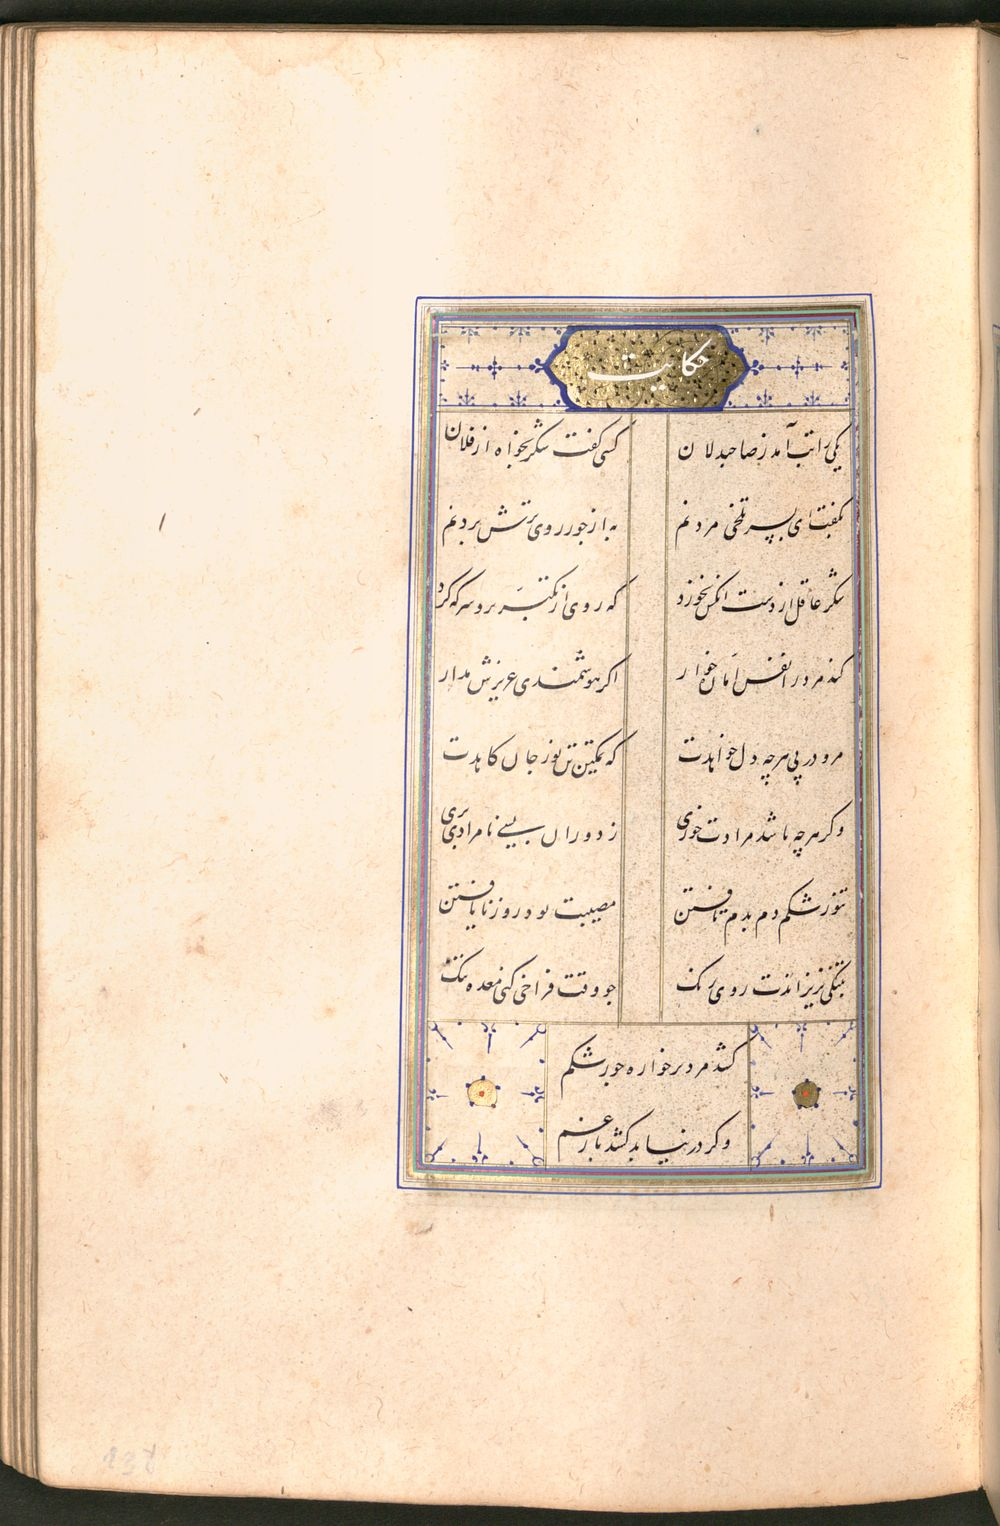 حکایت
یکی را تب آمد ز صاحبدلان کسی گفت شکر بخواه از فلان
بگفت ای پسر تلخی مردنم به از جور روی ترش بردنم
شکر عاقل از دست آنکس نخورد که روی از تکبّر برو سرکه کرد
کند مرد را نفس اماره خوار اگر هوشمندی عزیزش مدار
مرو در پی هرچه دل خواهدت که تمکین تن نور جان کاهدت
وگر هرچه باشد مرادت خوری ز دوران بسی نامرادی بری
تنور شکم دم بدم تافتن مصیبت بود روز نایافتن
بتنگی بریزاندت روی رنگ چو وقت فراخی کنی معده تنگ
کشد مرد پرخواره جور شکم
وگر در نیابد کشد بار غم